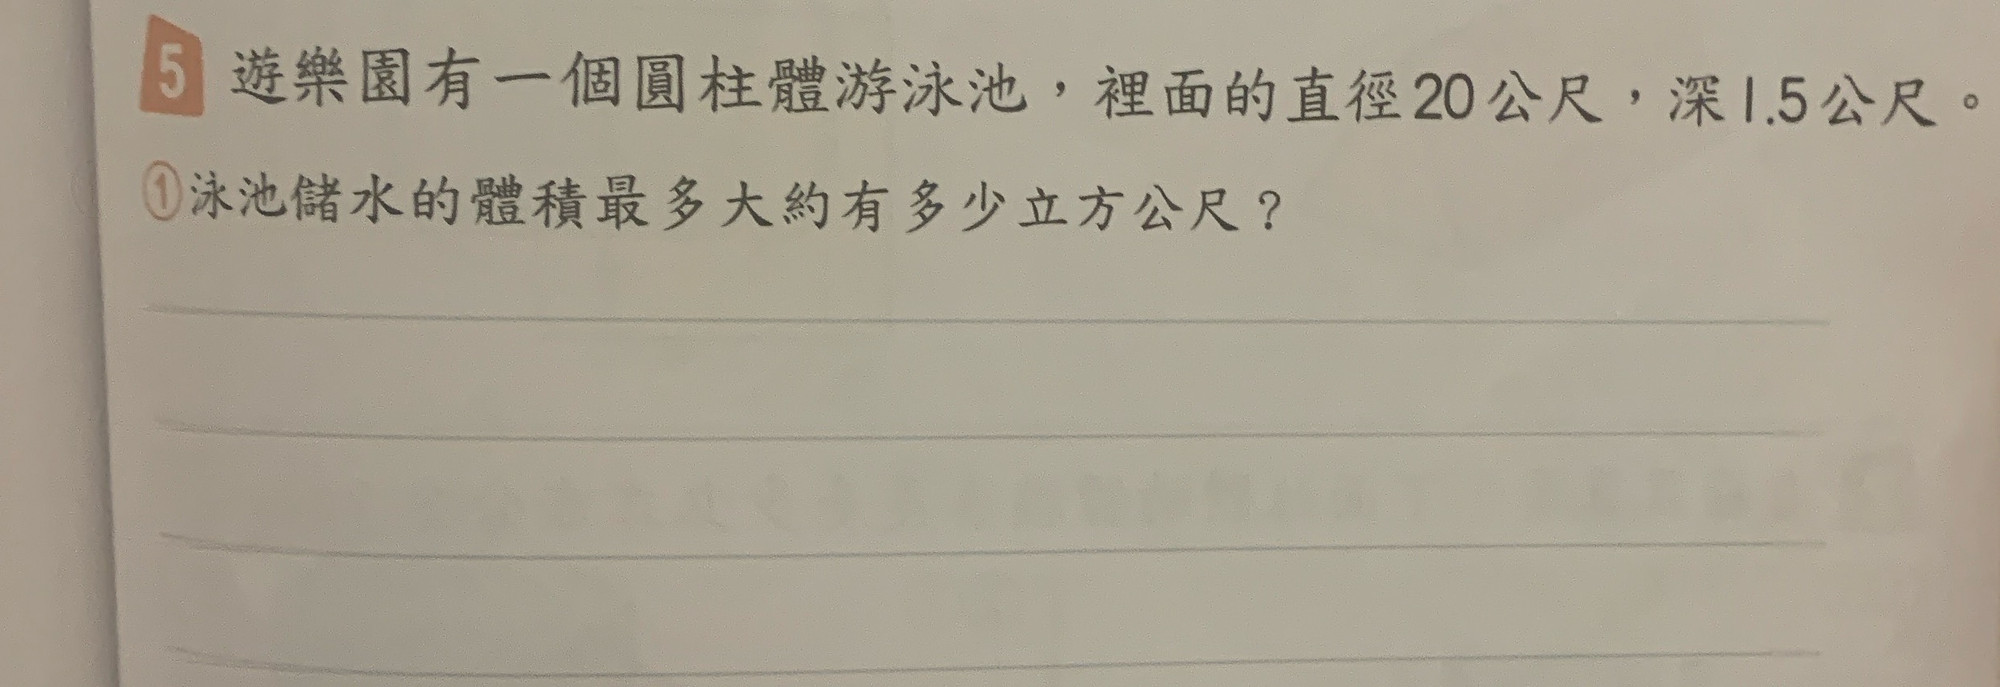 5 遊樂園有一個圓柱體游泳池，裡面的直徑20公尺，深1.5公尺。
①泳池儲水的體積最多大約有多少立方公尺？